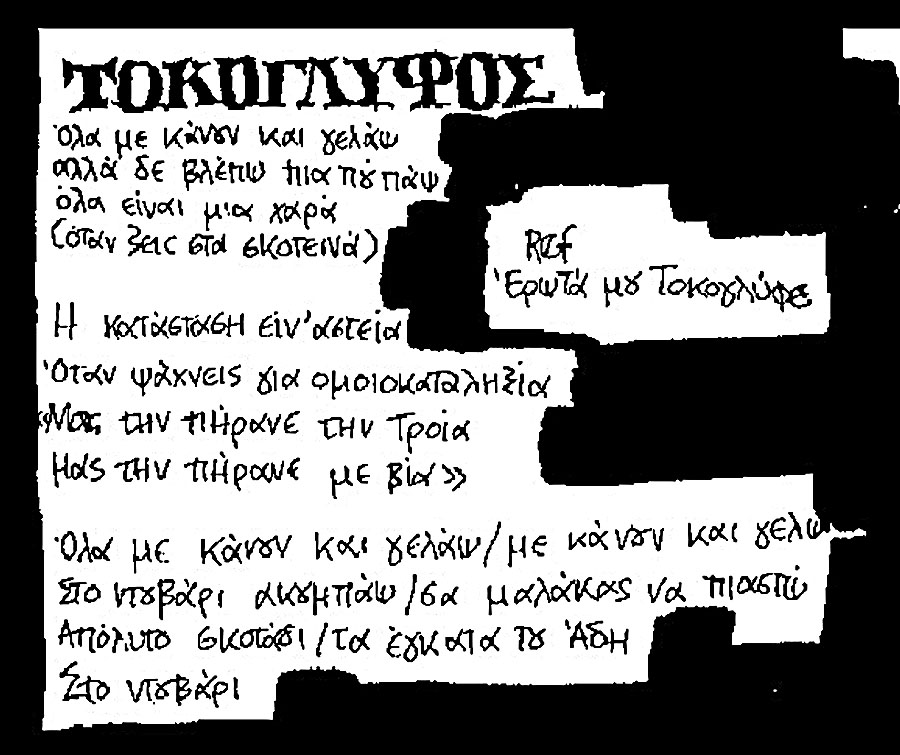 ΤΟΚΟΓΛΥΦΟΣ
Όλα με κάνουν και γελάω
αλλά δε βλέπω πια που πάω
όλα είναι μια χαρά
(όταν ζεις στα σκοτεινά)
Ref
Έρωτά μου Τοκογλύφε
Η κατάσταση είν' αστεία
Όταν ψάχνεις για ομοιοκαταληξία
«Μας την πήρανε την Τροία
Μας την πήρανε με βία»
Όλα με κάνουν και γελάω/με κάνουν και γελω
Στο ντουβάρι ακουμπάω/σα μαλάκας να πιαστώ
Απόλυτο σκοτάδι/τα έγκατα του Άδη
Στο ντουβάρι